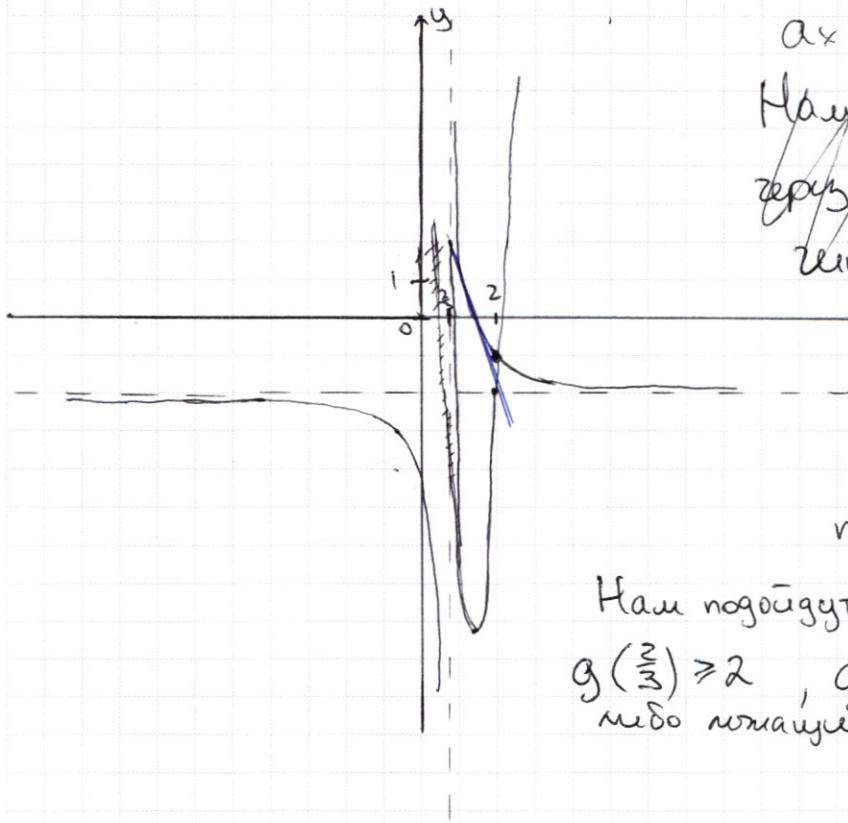 y
ax
Нам
через
1
2
0
Нам подойдут
g(2/3) ≥ 2 ,
либо лежащие